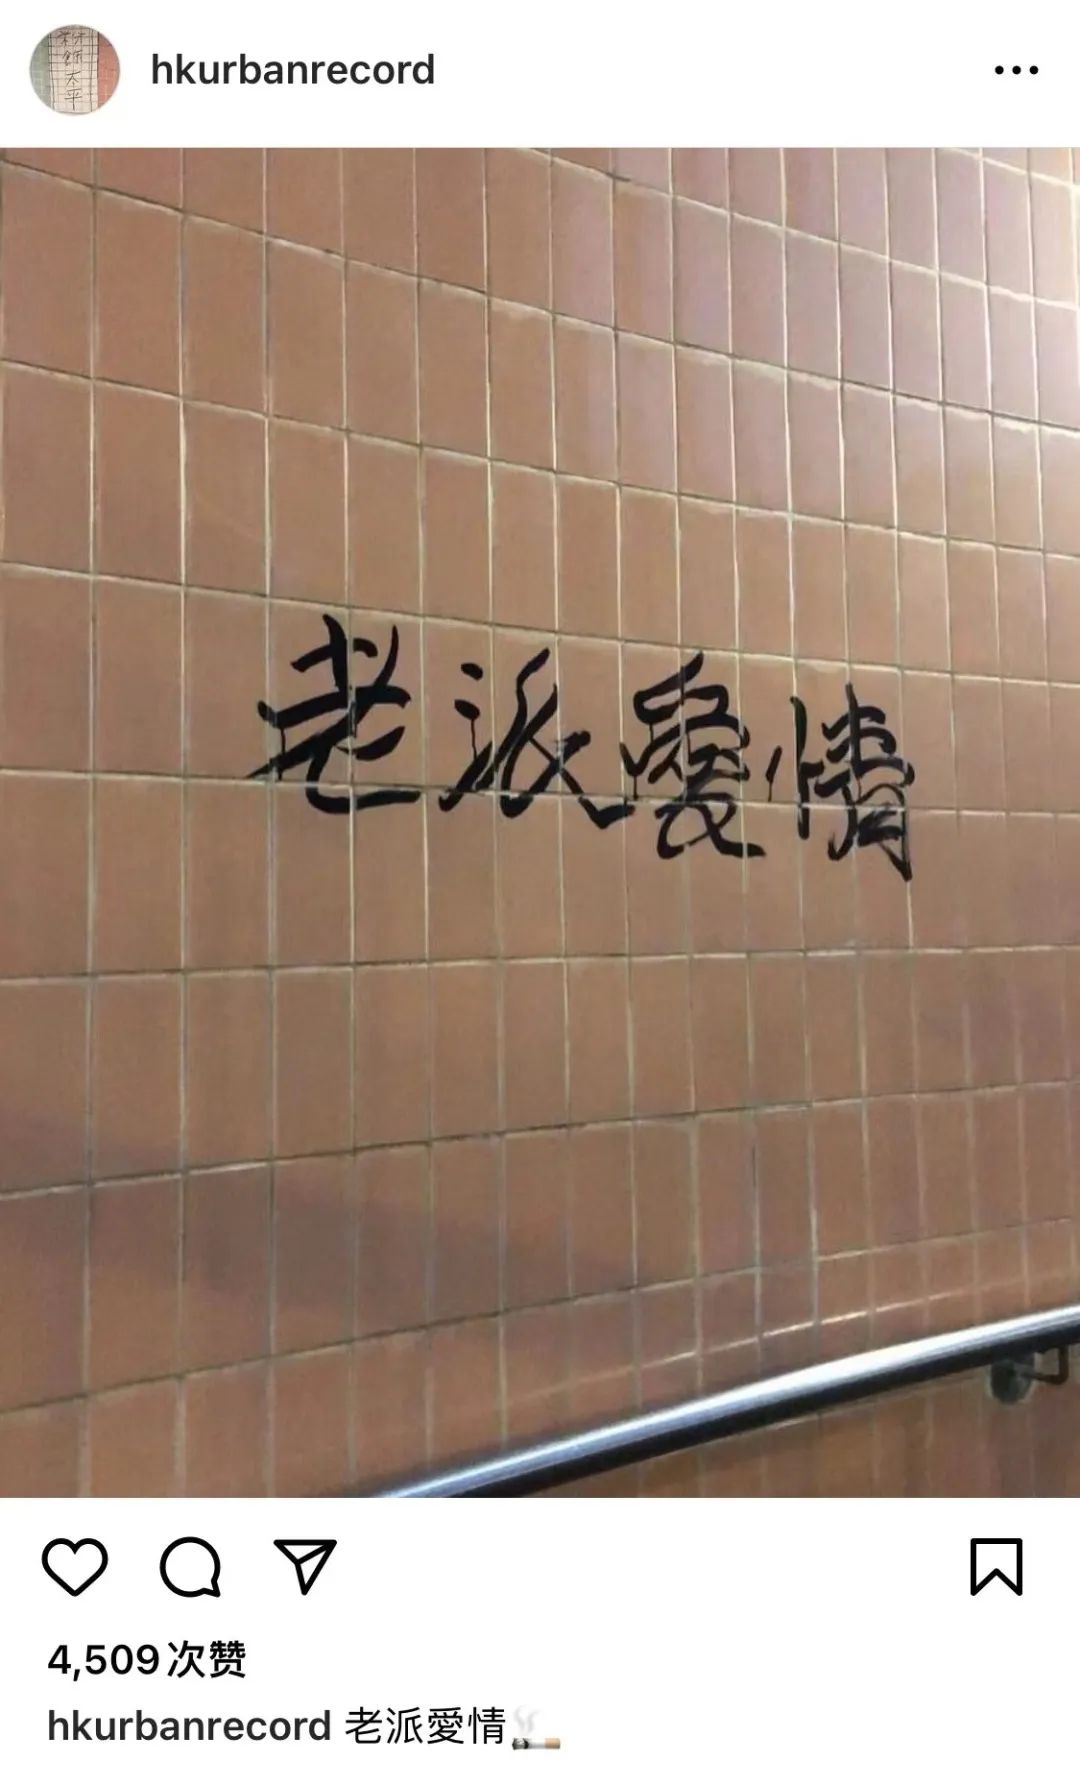 粉飾太平
hkurbanrecord
老派愛情
4,509次赞
hkurbanrecord 老派愛情🚬